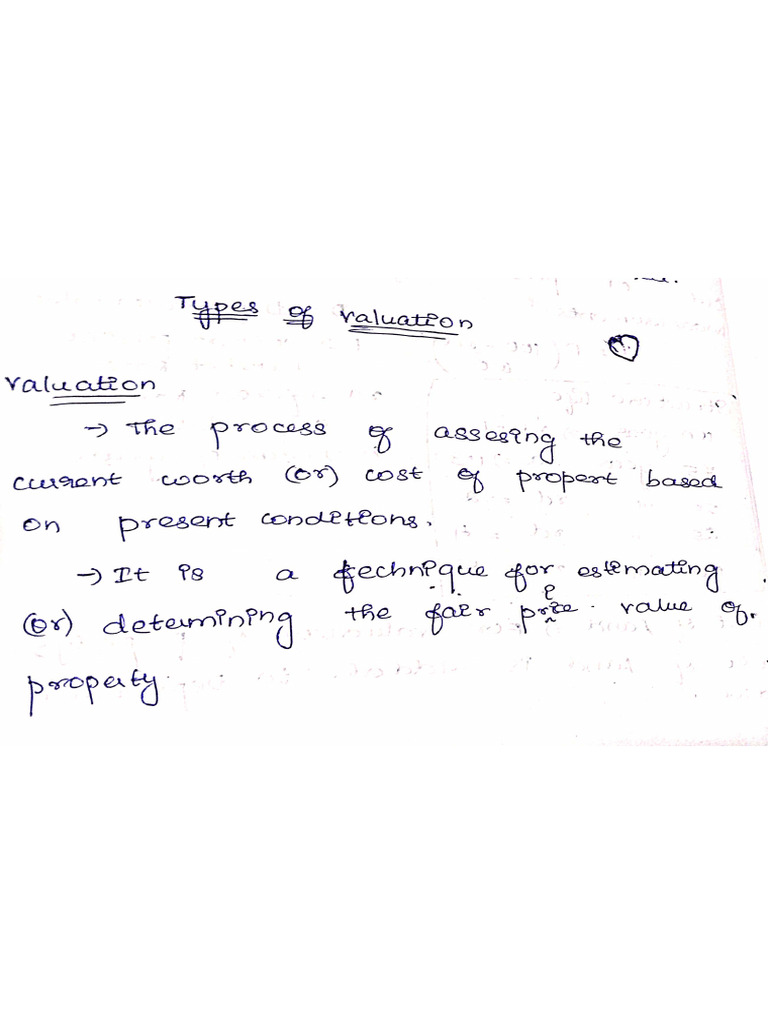 Types of valuation
valuation
→ The process of assesing the
current worth (or) cost of propert based
on present conditions.
→ It is a technique for estimating
(or) determining the fair price value of.
property.